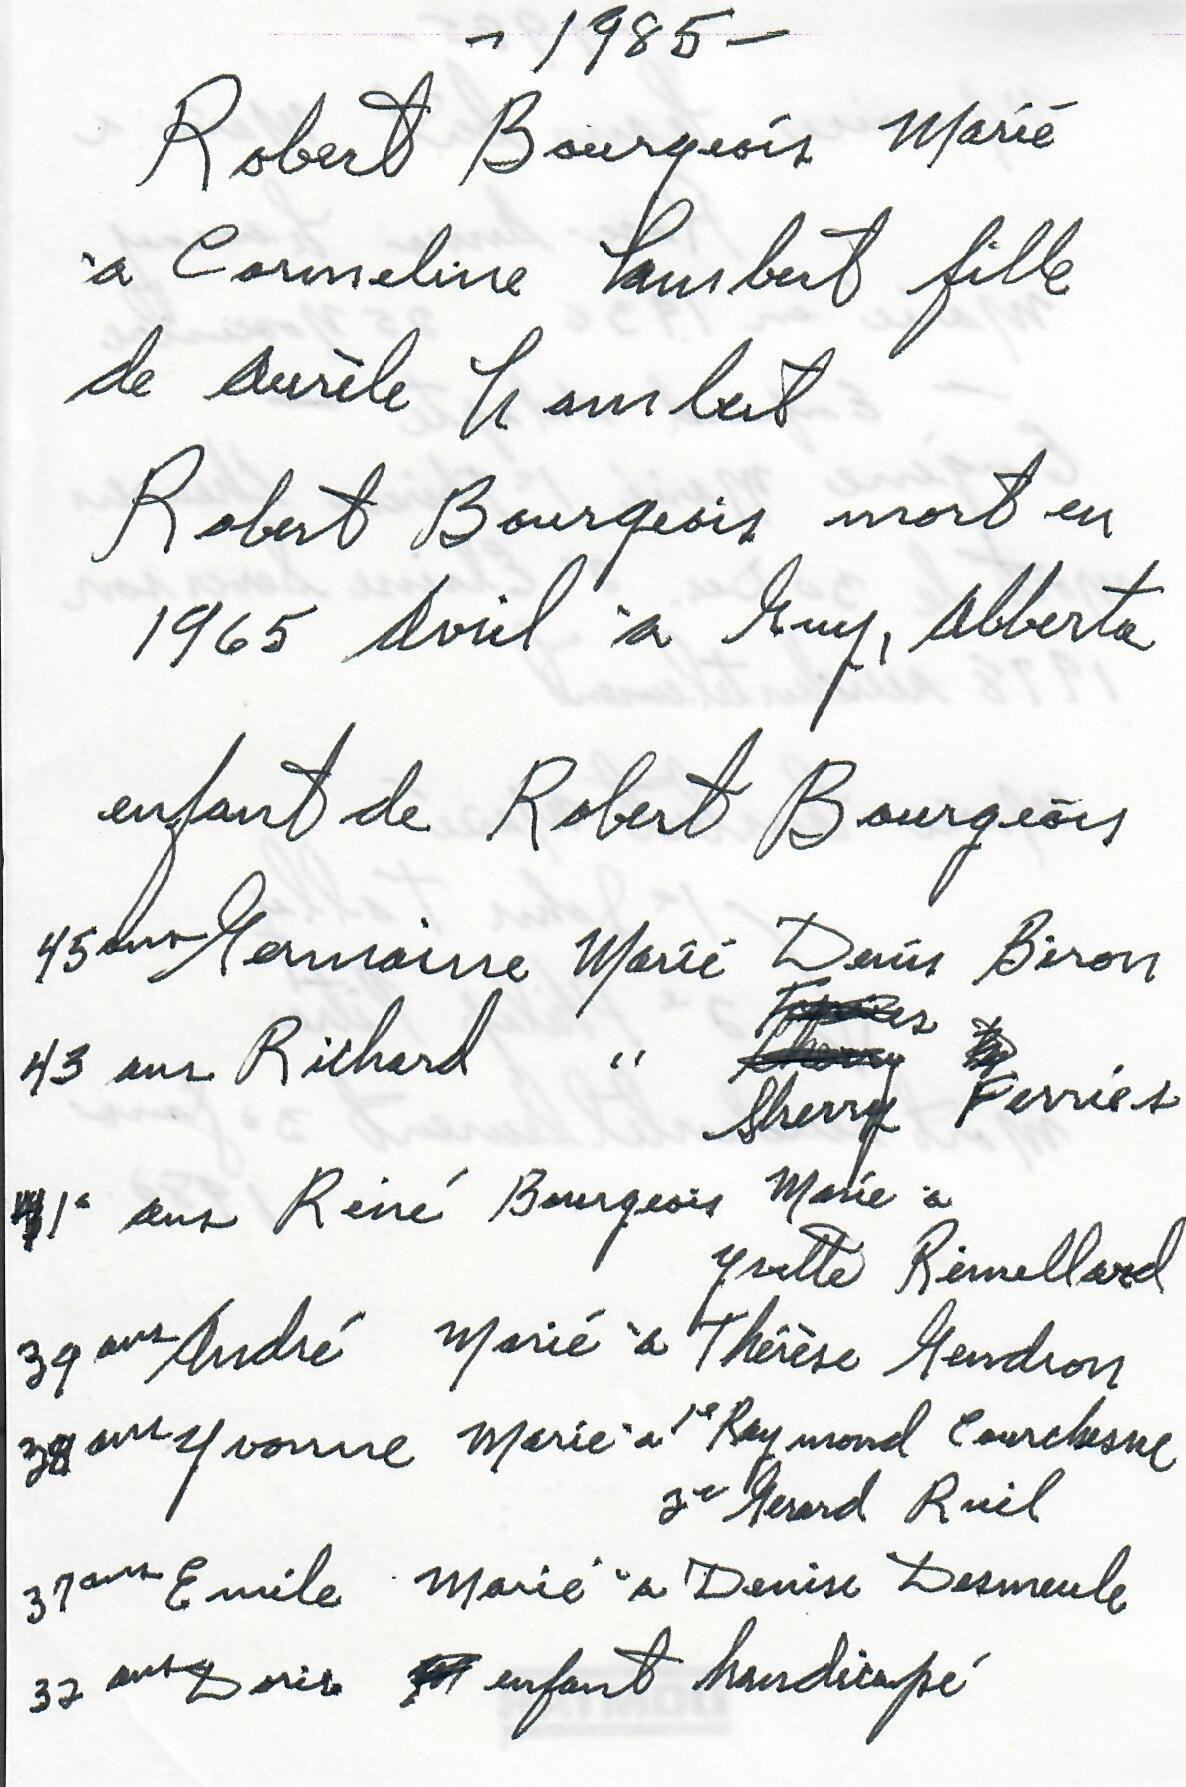 - 1985 -
Robert Bourgeois Marié
à Carmeline Lambert fille
de Aurèle Lambert
Robert Bourgeois mort en
1965 Avril à Guy, Alberta
enfant de Robert Bourgeois
45 ans Germaine Marié Denis Biron
43 ans Richard " Sherry Ferries
41 ans Réné Bourgeois Marié à
Yvette Rémillard
39 ans André Marié à Thérèse Gendron
38 ans Yvonne Marié à 1e Raymond Courchesne
2e Gerard Ruil
37 ans Emile Marié à Denise Desmeule
32 ans Doris enfant handicapé